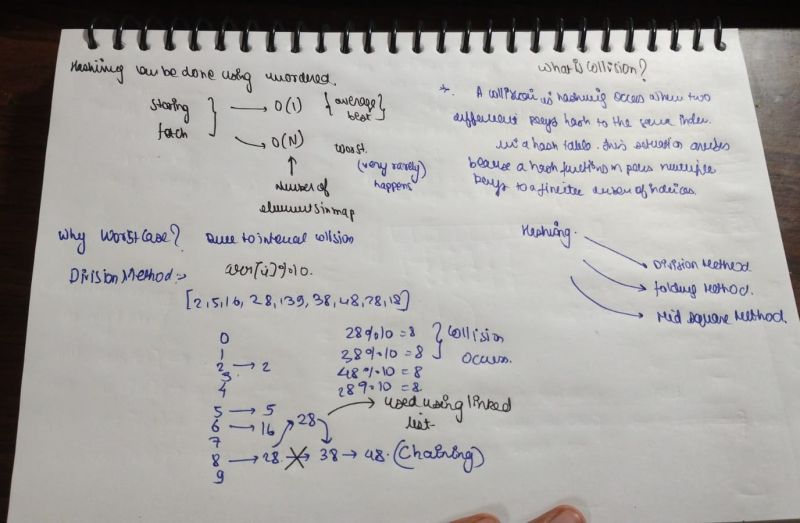 Hashing can be done using unordered.
Storing
fetch
→ O(1) {average best}
→ O(N) worst.
(very rarely)
happens
Number of
elements in map
What is Collision?
*. A collision is hashing occurs when two
different keys hash to the same index.
in a hash table. this situation arises
because a hash function maps multiple
keys to a finite number of indices.
Why Worst Case? Due to internal collision
Division Method :-
arr[i]%10.
[2,5,16, 28,139,38,48,28,18]
Hashing.
Division Method.
folding Method.
Mid Square Method.
0
1
2 → 2
3
4
5 → 5
6 → 16
7
8 → 28 → 38 → 48. (Chaining)
9
28
28%10=8
38%10=8
48%10=8
28%10=8
Collision
occurs.
used using linked
list.